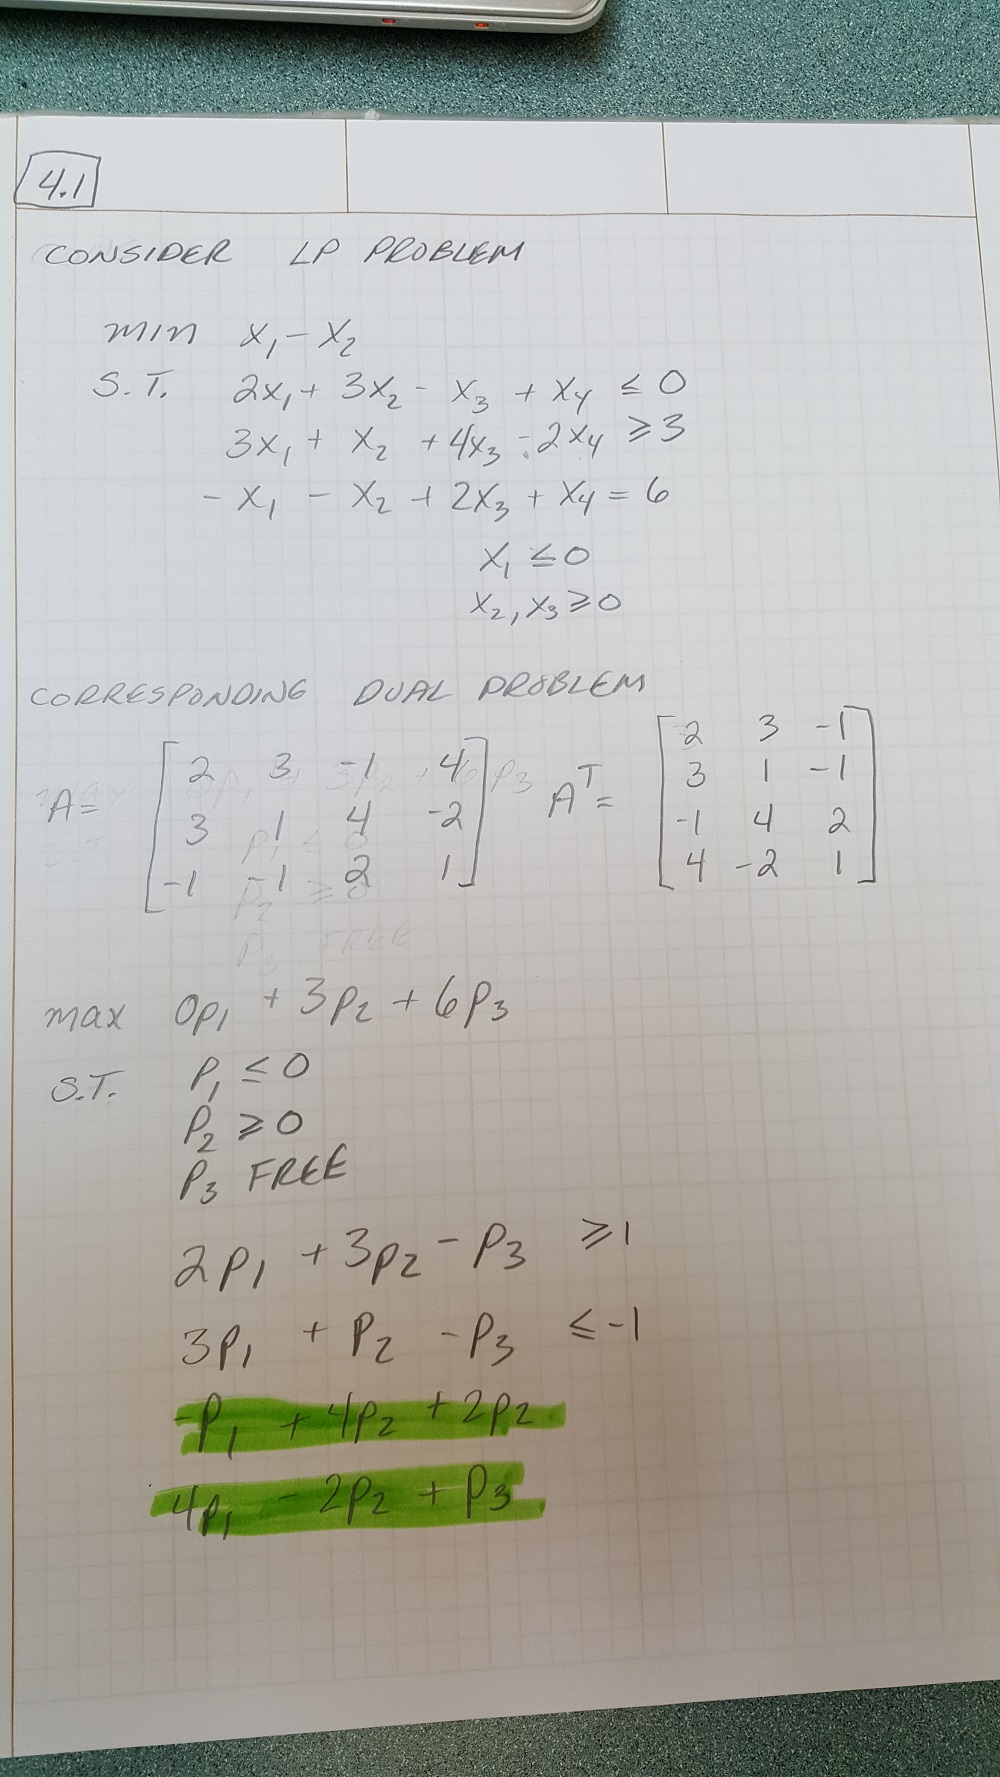 4.1
CONSIDER LP PROBLEM
min x₁ - x₂
S.T. 2x₁ + 3x₂ - x₃ + x₄ ≤ 0
3x₁ + x₂ + 4x₃ - 2x₄ ≥ 3
- x₁ - x₂ + 2x₃ + x₄ = 6
x₁ ≤ 0
x₂, x₃ ≥ 0
CORRESPONDING DUAL PROBLEM
A = [2 3 -1 4 Aᵀ = [2 3 -1
3 1 4 -2 3 1 -1
-1 -1 2 1] -1 4 2
4 -2 1]
max 0p₁ + 3p₂ + 6p₃
S.T. P₁ ≤ 0
P₂ ≥ 0
P₃ FREE
2p₁ + 3p₂ - p₃ ≥ 1
3p₁ + P₂ - P₃ ≤ -1
-P₁ + 4P₂ + 2P₂
4P₁ - 2P₂ + P₃